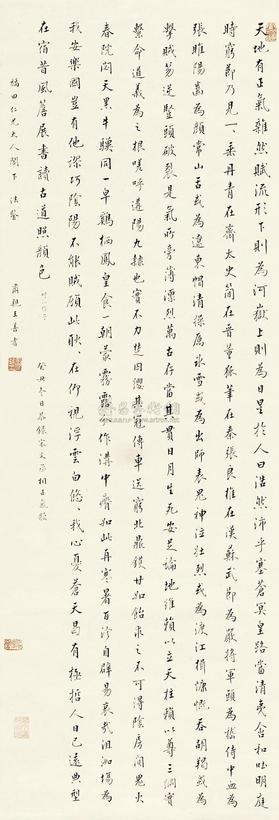 天地有正氣雜然賦流形下則為河嶽上則為日星於人曰浩然沛乎塞蒼冥皇路當清夷含和吐明庭
時窮節乃見一一垂丹青在齊太史簡在晉董狐筆在秦張良椎在漢蘇武節為嚴將軍頭為嵇侍中血為
張睢陽齒為顏常山舌或為遼東帽清操厲冰雪或為出師表鬼神泣壯烈或為渡江楫慷慨吞胡羯或為
擊賊笏逆豎頭破裂是氣所旁薄凜烈萬古存當其貫日月生死安足論地維賴以立天柱賴以尊三綱實
繫命道義為之根嗟呼遘陽九隸也實不力楚囚纓其冠傳車送窮北鼎鑊甘如飴求之不可得陰房闃鬼火
春院閟天黑牛驥同一皁雞棲鳳皇食一朝蒙霧露分作溝中瘠如此再寒暑百沴自辟易哀哉沮洳場為
我安樂國豈有他謬巧陰陽不能賊顧此耿耿在仰視浮雲白悠悠我心憂蒼天曷有極哲人日已遠典型
在宿昔風簷展書讀古道照顏色 冬日恭錄宋文丞相正氣歌
橋田仁兄大人閣下 法鑒 肅親王善耆書